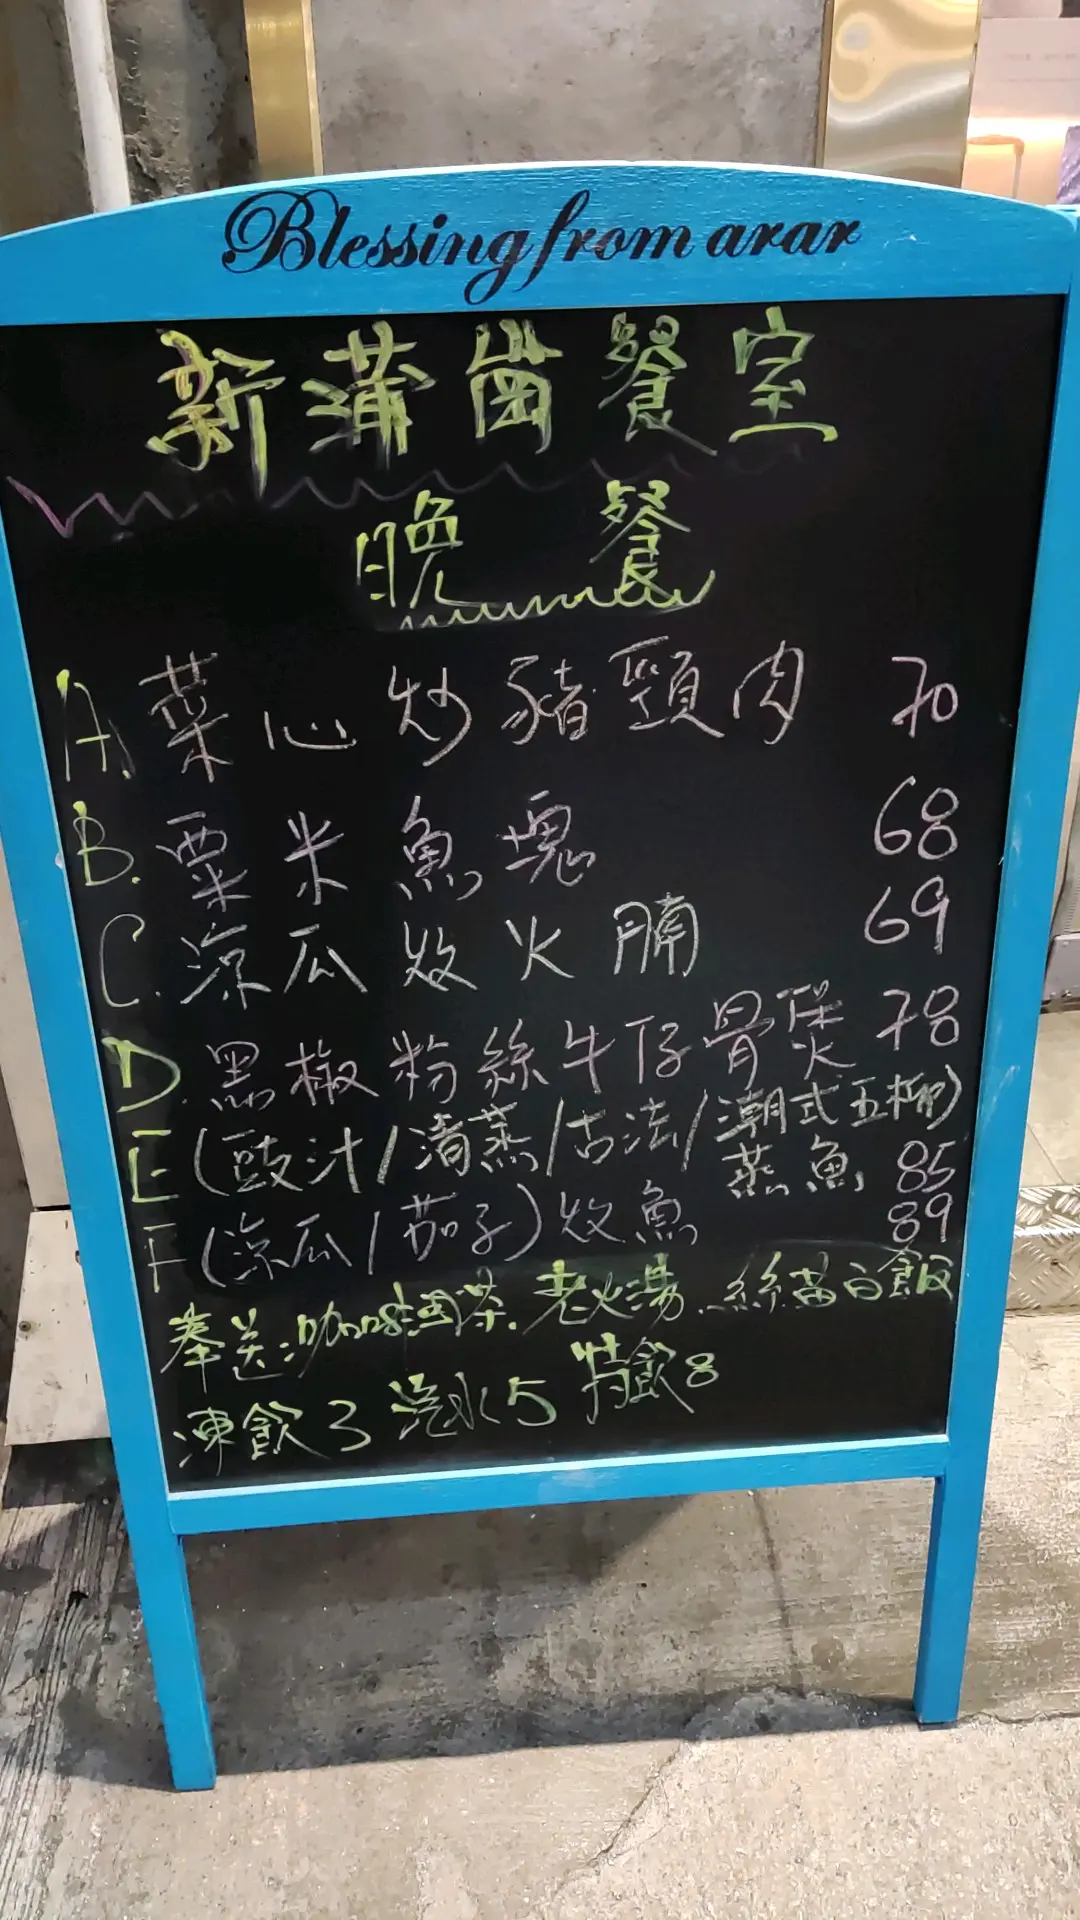 Blessing from arar
新蒲崗餐室
晚餐
A. 菜心炒豬頸肉 70
B. 粟米魚塊 68
C. 涼瓜炆火腩 69
D. 黑椒粉絲牛仔骨煲 78
E (豉汁/清蒸/古法/潮式五柳)蒸魚 85
F (涼瓜/茄子)炆魚 89
奉送:咖啡 茶. 老火湯. 絲苗白飯
凍飲3 汽水5 特飲8